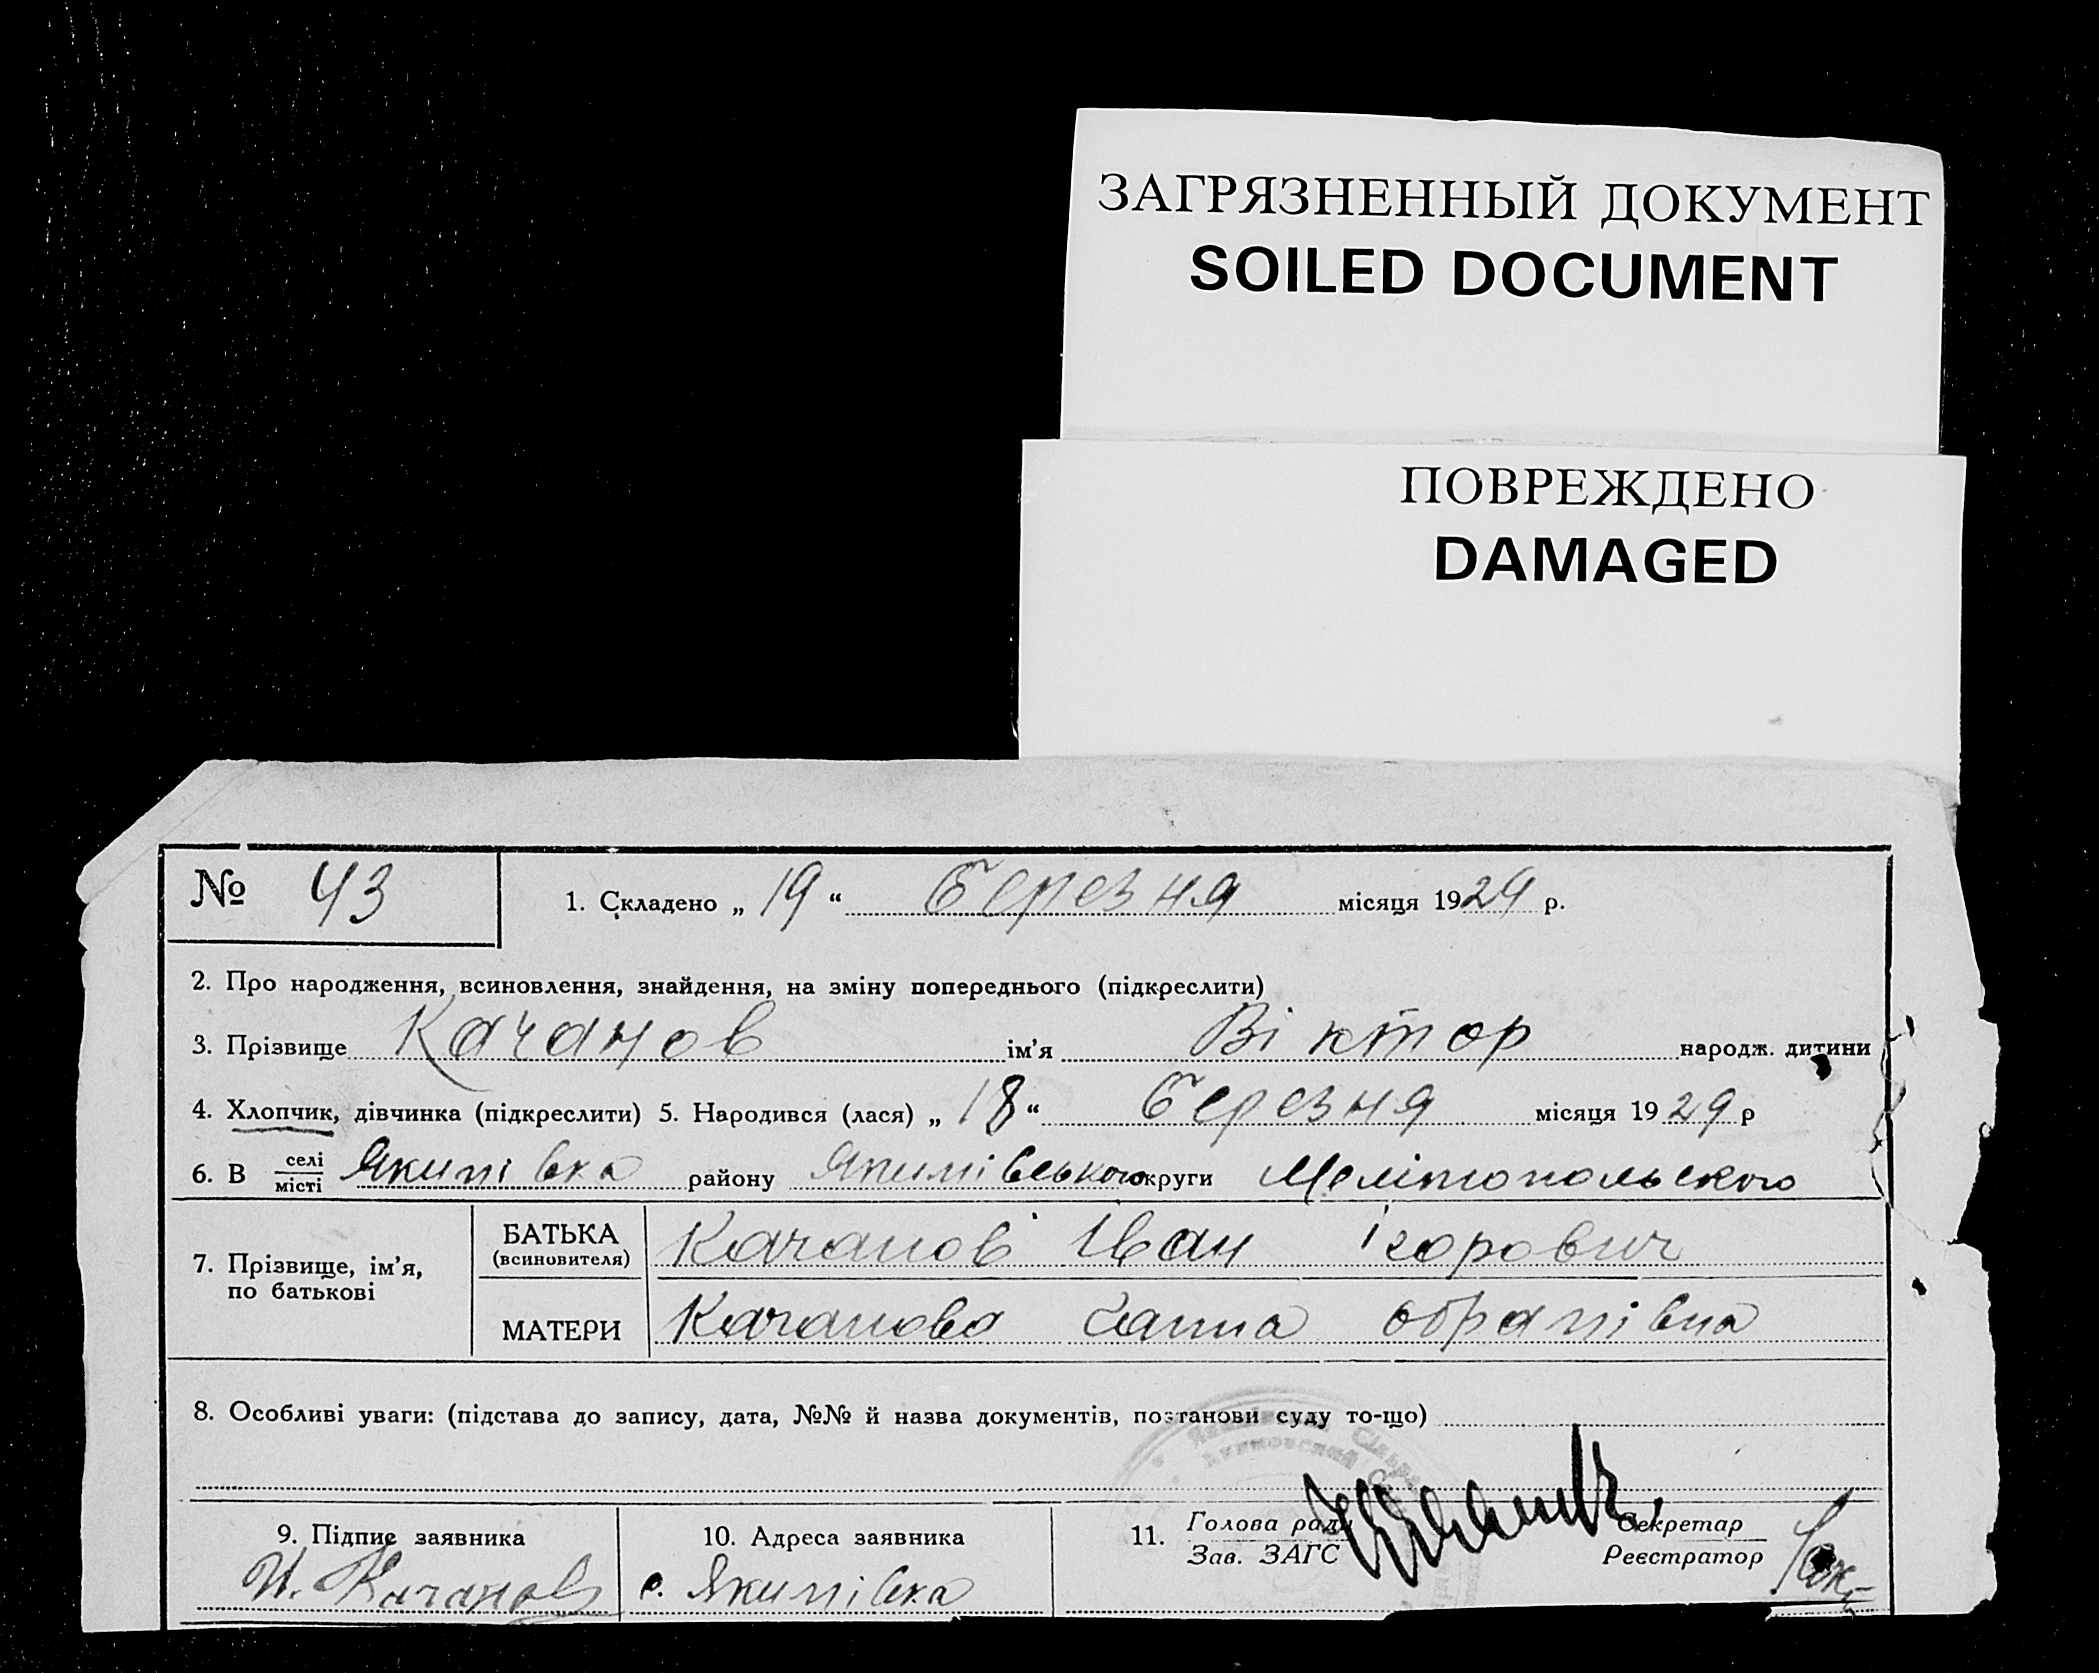 ЗАГРЯЗНЕННЫЙ ДОКУМЕНТ
SOILED DOCUMENT
ПОВРЕЖДЕНО
DAMAGED
№ 43
1. Складено „ 19 “ Березня місяця 1929 р.
2. Про народження, всиновлення, знайдення, на зміну попереднього (підкреслити)
3. Прізвище Качанов ім’я Віктор народж. дитини
4. Хлопчик, дівчинка (підкреслити) 5. Народився (лася) „ 18 “ Березня місяця 1929 р
6. В селі місті Якимівка району Якимівського округи Мелітопольского
7. Прізвище, ім’я, по батькові
БАТЬКА (всиновителя) Качанов Іван Ігорович
МАТЕРИ Качанова Ганна
8. Особливі уваги: (підстава до запису, дата, №№ й назва документів, постанови суду то-що)
9. Підпис заявника
И. Качанов
10. Адреса заявника
с. Якимівка
11. Голова ради
Зав. ЗАГС
Секретар
Реєстратор